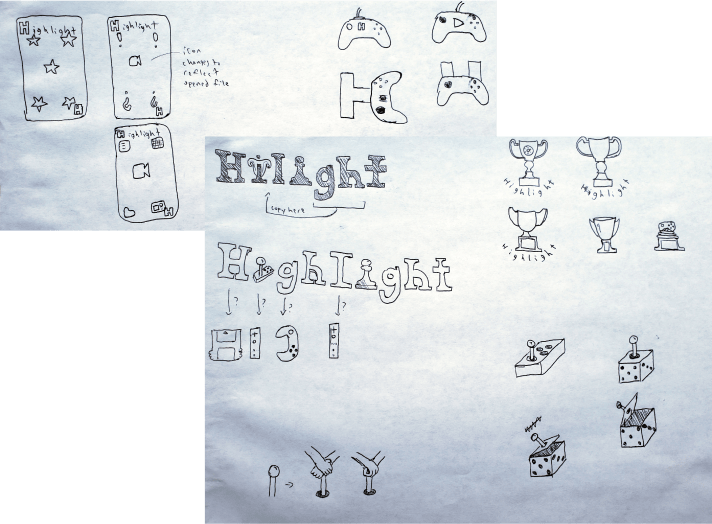 Highlight
Highlight
icon
changes to
reflect
opened file
H
H
Highlight
H
Hilight
copy here
HighlIght
? ? ? ?
Highlight
Highlight
Highlight